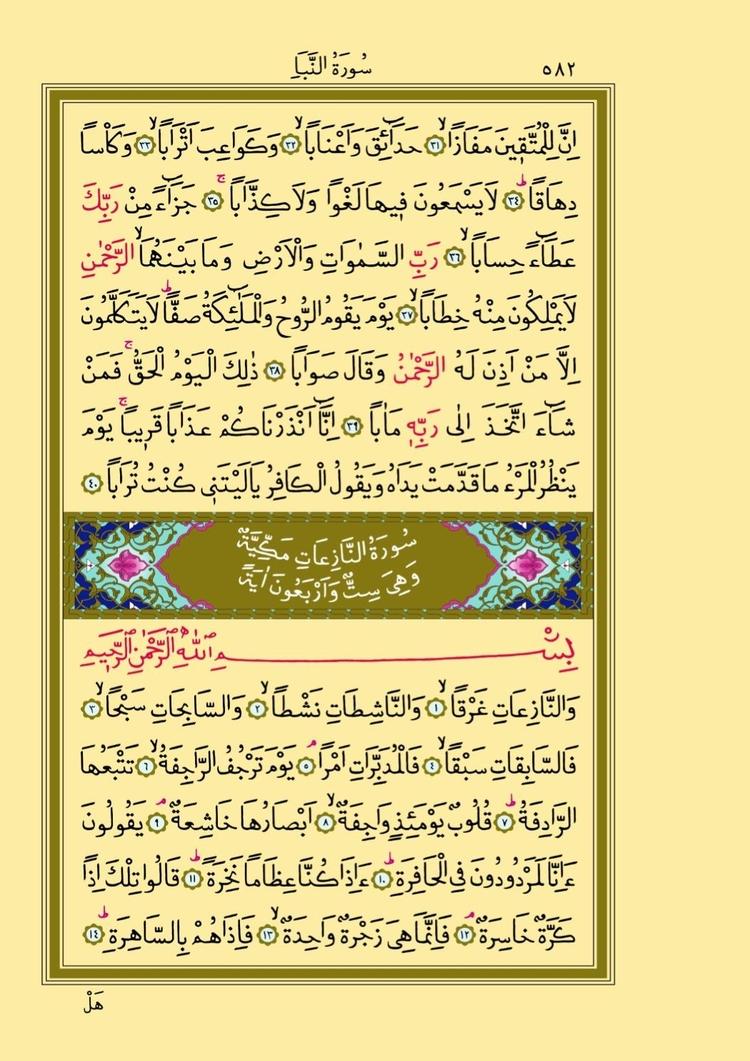 ٥٨٢
سُورَةُ النَّبَأِ
اِنَّ لِلْمُتَّق۪ينَ مَفَازًاۙ ﴿٣١﴾ حَدَٓائِقَ وَاَعْنَابًاۙ ﴿٣٢﴾ وَكَوَاعِبَ اَتْرَابًاۙ ﴿٣٣﴾ وَكَأْسًا
دِهَاقًاۜ ﴿٣٤﴾ لَا يَسْمَعُونَ ف۪يهَا لَغْوًا وَلَا كِذَّابًاۚ ﴿٣٥﴾ جَزَٓاءً مِنْ رَبِّكَ
عَطَٓاءً حِسَابًاۙ ﴿٣٦﴾ رَبِّ السَّمٰوَاتِ وَالْاَرْضِ وَمَا بَيْنَهُمَاۙ الرَّحْمٰنِ
لَا يَمْلِكُونَ مِنْهُ خِطَابًاۙ ﴿٣٧﴾ يَوْمَ يَقُومُ الرُّوحُ وَالْمَلٰٓئِكَةُ صَفًّاۜ لَا يَتَكَلَّمُونَ
اِلَّا مَنْ اَذِنَ لَهُ الرَّحْمٰنُ وَقَالَ صَوَابًا ﴿٣٨﴾ ذٰلِكَ الْيَوْمُ الْحَقُّۚ فَمَنْ
شَٓاءَ اتَّخَذَ اِلٰى رَبِّه۪ مَاٰبًا ﴿٣٩﴾ اِنَّٓا اَنْذَرْنَاكُمْ عَذَابًا قَر۪يبًاۚ يَوْمَ
يَنْظُرُ الْمَرْءُ مَا قَدَّمَتْ يَدَاهُ وَيَقُولُ الْكَافِرُ يَا لَيْتَن۪ي كُنْتُ تُرَابًا ﴿٤٠﴾
سُورَةُ النَّازِعَاتِ مَكِّيَّةٌ
وَهِيَ سِتٌّ وَاَرْبَعُونَ اٰيَةً
بِسْمِ اللّٰهِ الرَّحْمٰنِ الرَّح۪يمِ
وَالنَّازِعَاتِ غَرْقًاۙ ﴿١﴾ وَالنَّاشِطَاتِ نَشْطًاۙ ﴿٢﴾ وَالسَّابِحَاتِ سَبْحًاۙ ﴿٣﴾
فَالسَّابِقَاتِ سَبْقًاۙ ﴿٤﴾ فَالْمُدَبِّرَاتِ اَمْرًاۢ ﴿٥﴾ يَوْمَ تَرْجُفُ الرَّاجِفَةُۙ ﴿٦﴾ تَتْبَعُهَا
الرَّادِفَةُۜ ﴿٧﴾ قُلُوبٌ يَوْمَئِذٍ وَاجِفَةٌۙ ﴿٨﴾ اَبْصَارُهَا خَاشِعَةٌۢ ﴿٩﴾ يَقُولُونَ
ءَاِنَّا لَمَرْدُودُونَ فِي الْحَافِرَةِۜ ﴿١٠﴾ ءَاِذَا كُنَّا عِظَامًا نَخِرَةًۜ ﴿١١﴾ قَالُوا تِلْكَ اِذًا
كَرَّةٌ خَاسِرَةٌۢ ﴿١٢﴾ فَاِنَّمَا هِيَ زَجْرَةٌ وَاحِدَةٌۙ ﴿١٣﴾ فَاِذَا هُمْ بِالسَّاهِرَةِۜ ﴿١٤﴾
هَلْ